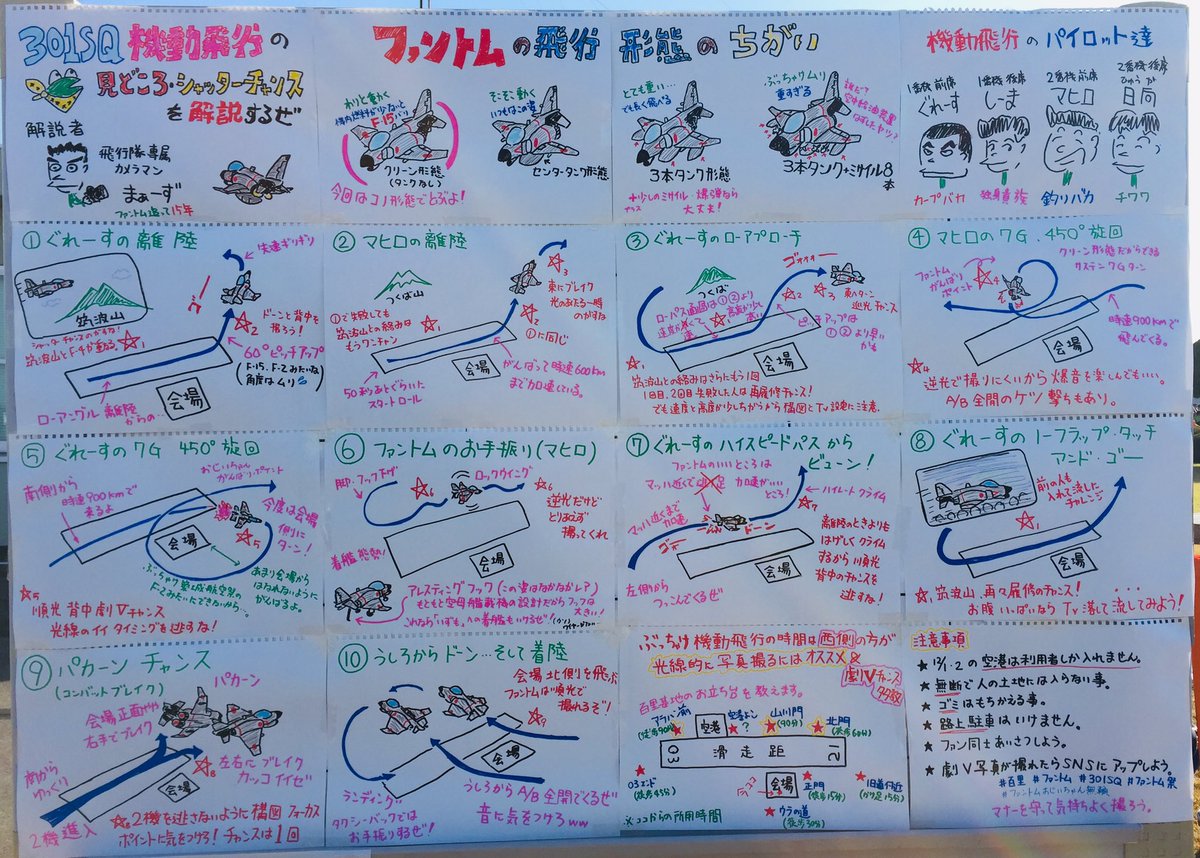 301SQ 機動飛行の
見どころ・シャッターチャンス
を解説するぜ
解説者
飛行隊専属
カメラマン
まぁーず
ファントム追って15年
ファントムの飛行形態のちがい
わりと動く
機内燃料が少ないと
F-15バリ
クリーン形態
(タンクなし)
今回はコノ形態でとぶよ!
そこそこ動く
いつもはこの姿
センタータンク形態
とても重い…
でも長く飛べる
3本タンク形態
+少しのミサイル・爆弾なら
大丈夫!
ぶっちゃけムリ
重すぎる
3本タンク+ミサイル8本
機動飛行のパイロット達
1番機前席
ぐれーす
カープバカ
1番機後席
しーま
独身貴族
2番機前席
マヒロ
釣りバカ
2番機後席
ひゅうが
日向
チワワ
① ぐれーすの離陸
失速ギリギリ
筑波山
シャッターチャンスのがすな!
筑波山とF-4が重なる
☆1
☆2
ドーンと背中を
撮ろう!
60°ピッチアップ
F-15、F-2みたいな
角度はムリ
会場
ローアングル離陸
からの…
② マヒロの離陸
つくば山
☆3
東にブレイク
光のあたる一瞬
のがすな
①で失敗しても
筑波山との絡みは
もうワンチャン
☆1
☆2
①に同じ
会場
がんばって時速600km
まで加速している。
50秒あとぐらいた
スタートロール
③ ぐれーすのローアプローチ
ゴォォォー
つくば
☆2
☆3
東へターン
逆光チャンス
ローパス通過は①②より
速度が速くて高度が少し高い
☆1
ピッチアップは
①②より早い
かも
会場
☆1
筑波山との絡みはさらにもう1回
1回目、2回目失敗した人は再履修チャンス!
でも速度と高度が少しちがうから構図とTv設定に注意。
④ マヒロの7G、450°旋回
クリーン形態だからできる
サステン7Gターン
ファントム
がんばり
ポイント
☆4
会場
時速900kmで
飛んでくる。
☆4
逆光で撮りにくいから爆音を楽しんでもいい。
A/B全開のケツ撃ちもあり。
⑤ ぐれーすの7G 450°旋回
南側から
時速900kmで
来るよ
おじいちゃん
がんばりポイント
今度は会場
側に
ターン!
☆5
会場
あまり会場から
はなれないように
がんばるよ。
ぶっちゃけ築城航空祭の
F-2みたいにできないから…
☆5
順光 背中劇Vチャンス
光線のイイ タイミングを逃すな!
⑥ ファントムのお手振り(マヒロ)
脚・フック下げ
ロックウイング
☆6
☆6
逆光だけど
とりあえず
撮ってくれ
会場
着艦態勢!
アレスティングフック(この姿はなかなかし?)
もともと空母艦載機の設計だからフックは
大きい!
これなら「いずも」への着艦もいけるぜ
⑦ ぐれーすのハイスピードパスから
ビューン!
ファントムのいいところは
加速がいい
ところ!
ハイレートクライム
☆7
マッハ近くまで
加速
ゴォー
ドーン
離陸のときよりも
はげしくクライム
するから順光
背中のチャンスを
逃すな!
会場
左側から
つっこんでくるぜ
⑧ ぐれーすのノーフラップ・タッチ
アンド・ゴー
前の人も
入れて流した
チャレンジ
☆1
会場
☆1、筑波山、再々履修のチャンス!
お腹いっぱいなら Tv落して流してみよう!
⑨ パカーン チャンス
(コンバットブレイク)
パカーン
会場正面やや
右手でブレイク
南から
ゆっくり
会場
☆8
左右にブレイク
カッコイイゼ
2機進入
☆8
2機を逃さないように構図 フォーカス
ポイントに気をつけろ! チャンスは1回
⑩ うしろからドン…そして着陸
会場北側を飛ぶ
ファントムは順光で
撮れるぞ!
☆9
会場
ランディング
うしろからA/B全開でくるぜ
音に気をつけろww
タクシーバックでは
お手振りするぜ!
ぶっちけ機動飛行の時間は西側の方が
光線的に写真撮るにはオススメ&
劇Vチャンス
タタ数
百里基地のお立ち台を教えます。
アラハン前
(徒歩90分)
空港
空港よこ
?
山川門
(90分)
北門
(徒歩60分)
03 滑走距 21
03エンド
(徒歩45分)
会場
正門
(徒歩15分)
旧道付近
(かけ足15分)
ウラの道
(徒歩30分)
※ココからの所用時間
注意事項
★ 12/1・2の空港は利用者しか入れません。
★ 無断で人の土地には入らない事。
★ ゴミはもちかえる事。
★ 路上駐車はいけません。
★ ファン同士あいさつしよう。
★ 劇V写真が撮れたらSNSにアップしよう。
#百里 #ファントム #301SQ #ファントム祭
#ファントムおじいちゃん無敵
マナーを守って気持ちよく撮ろう。